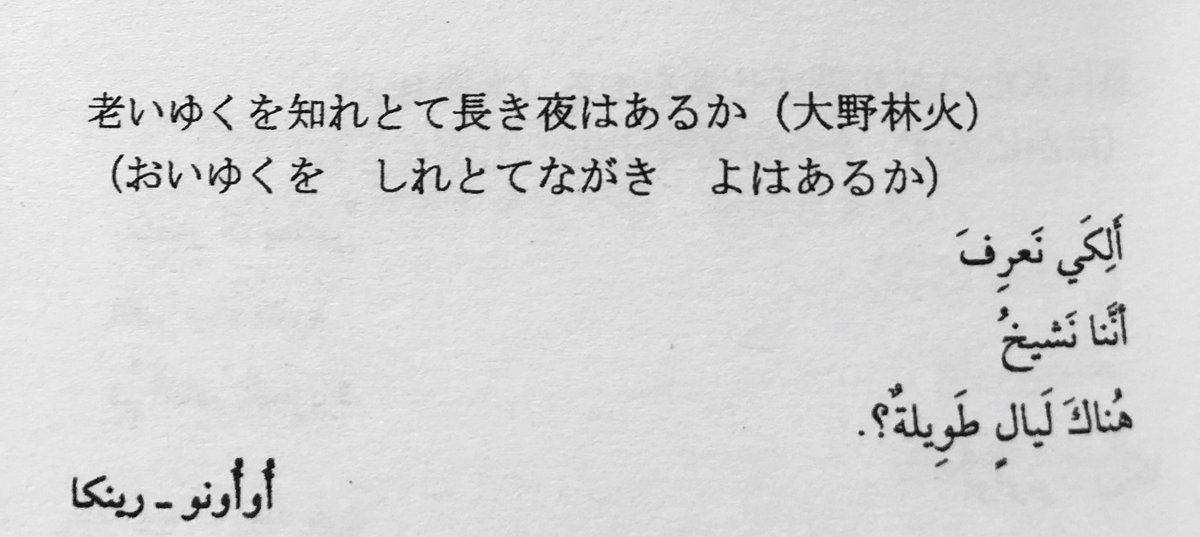 老いゆくを知れとて長き夜はあるか（大野林火）
（おいゆくを　しれとてながき　よはあるか）
أَلِكَي نَعرِفَ
أنَّنا نَشيخُ
هُناكَ لَيالٍ طَوِيلةٌ؟.
أُوأُونو - رينكا